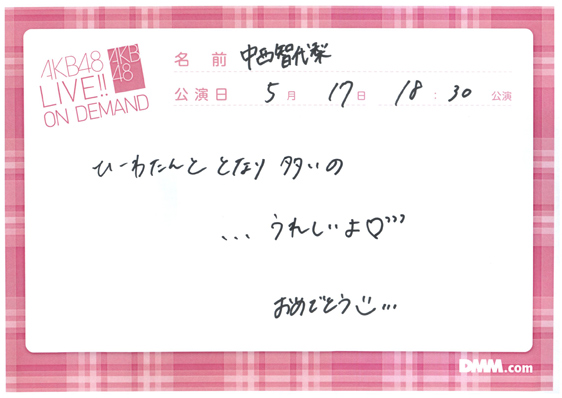 AKB48
LIVE!!
ON DEMAND
AKB
48
名 前 中西智代梨
公演日 5月 17日 18:30 公演
ひーわたんと となり 多いの
... うれしいよ♡”’
おめでとう
DMM.com